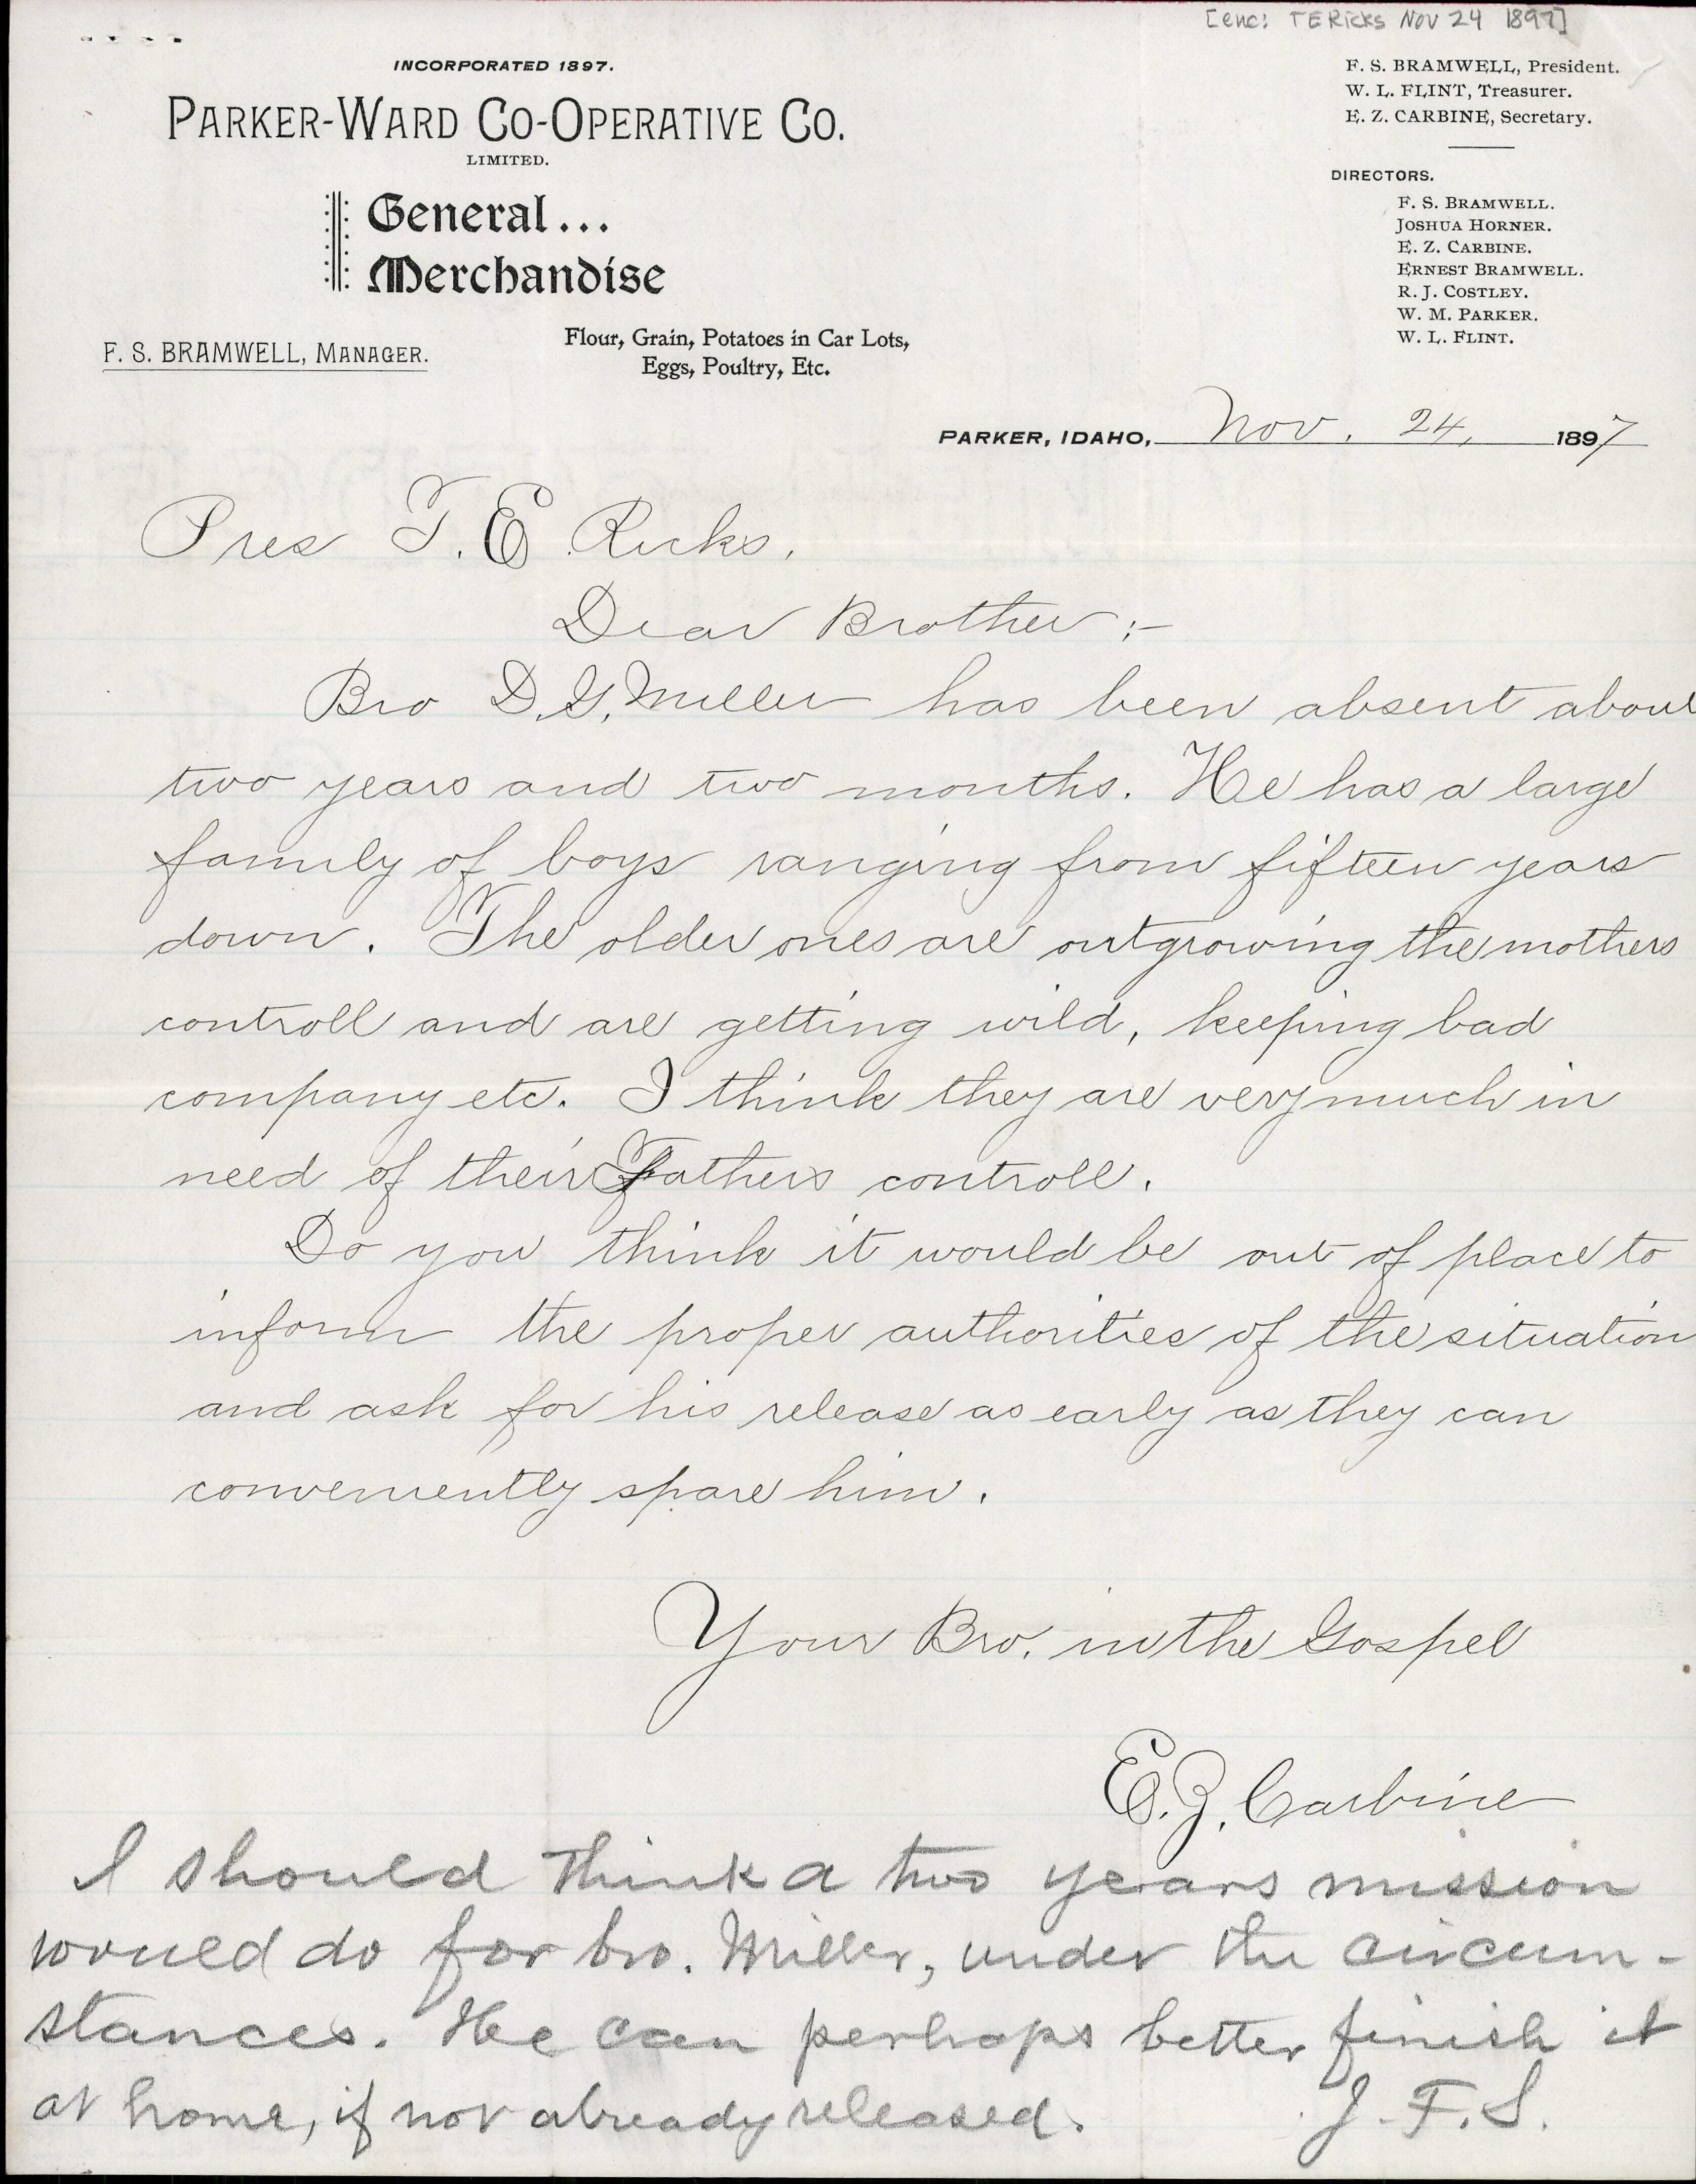 [enc: TERicks Nov 24 1897]
INCORPORATED 1897.
PARKER-WARD CO-OPERATIVE CO.
LIMITED.
General...
Merchandise
F. S. BRAMWELL, MANAGER.
Flour, Grain, Potatoes in Car Lots,
Eggs, Poultry, Etc.
F. S. BRAMWELL, President.
W. L. FLINT, Treasurer.
E. Z. CARBINE, Secretary.
DIRECTORS.
F. S. BRAMWELL.
JOSHUA HORNER.
E. Z. CARBINE.
ERNEST BRAMWELL.
R. J. COSTLEY.
W. M. PARKER.
W. L. FLINT.
PARKER, IDAHO, Nov. 24, 1897
Pres T. E Ricks.
Dear Brother :-
Bro D. G. Miller has been absent about
two years and two months. He has a large
family of boys ranging from fifteen years
down. The older ones are outgrowing the mothers
controll and are getting wild, keeping bad
company etc. I think they are very much in
need of their Fathers controll.
Do you think it would be out of place to
inform the proper authorities of the situation
and ask for his release as early as they can
conveniently spare him.
Your Bro. in the Gospel
E. Z. Carbine
I should think a two years mission
would do for bro. Miller, under the circum-
stances. He can perhaps better finish it
at home, if not already released. J. F. S.